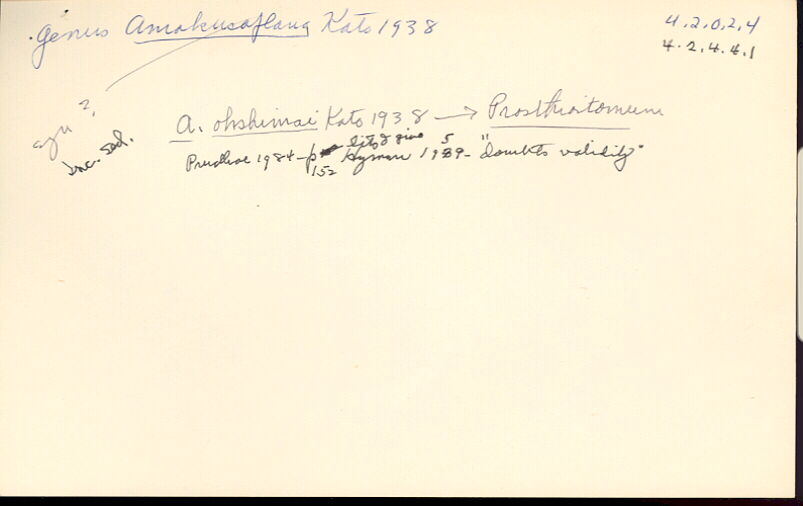 genus Amakusaplana Kato 1938
4.2.0.2.4
4.2.4.4.1
syn ?
Inc. sed.
A. ohshimai Kato 1938 → Prosthiostomum
Prudhoe 1984 - p 152 Hyman 1959 - "doubts validity"